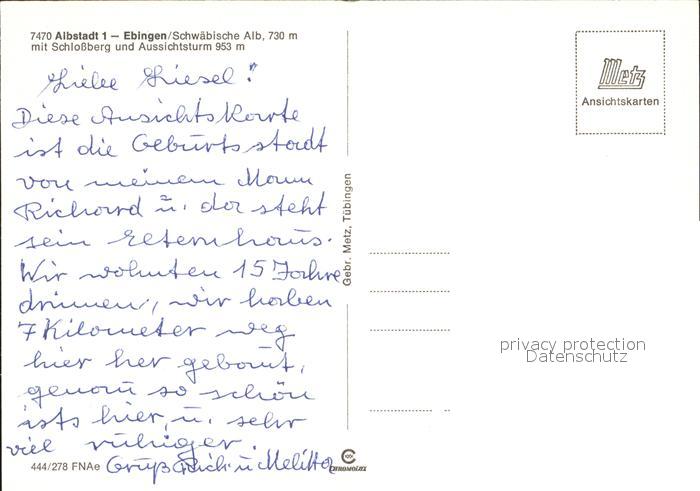 7470 Albstadt 1 – Ebingen/Schwäbische Alb, 730 m
mit Schloßberg und Aussichtsturm 953 m
Liebe Liesel!
Diese Ansichtskarte
ist die Geburtsstadt
von meinem Mann
Richard u. da steht
sein Elternhaus.
Wir wohnten 15 Jahre
drinnen, wir haben
7 Kilometer weg
hier her gebaut,
genau so schön
ists hier, u. sehr
viel ruhiger.
Gruß Rich. u Melitta
444/278 FNAe
Gebr. Metz, Tübingen
CHROMOLUX
Metz
Ansichtskarten
privacy protection
Datenschutz